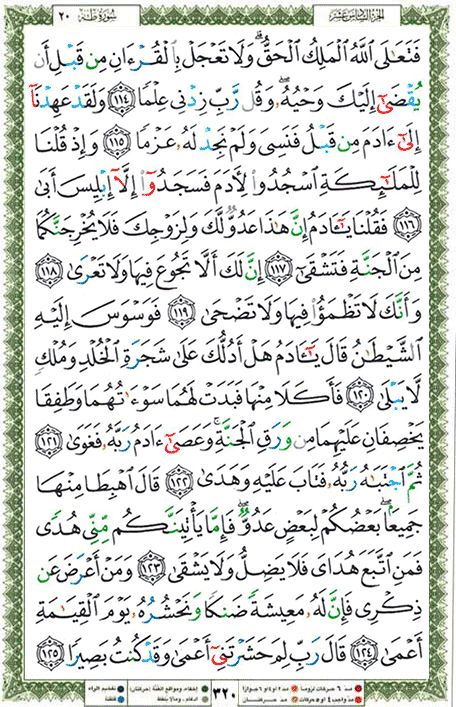 الجزء السادس عشر سورة طه ٢٠
فَتَعَٰلَى ٱللَّهُ ٱلْمَلِكُ ٱلْحَقُّ ۗ وَلَا تَعْجَلْ بِٱلْقُرْءَانِ مِن قَبْلِ أَن
يُقْضَىٰٓ إِلَيْكَ وَحْيُهُۥ ۖ وَقُل رَّبِّ زِدْنِى عِلْمًا ١١٤ وَلَقَدْ عَهِدْنَآ
إِلَىٰٓ ءَادَمَ مِن قَبْلُ فَنَسِىَ وَلَمْ نَجِدْ لَهُۥ عَزْمًا ١١٥ وَإِذْ قُلْنَا
لِلْمَلَٰٓئِكَةِ ٱسْجُدُوا۟ لِءَادَمَ فَسَجَدُوٓا۟ إِلَّآ إِبْلِيسَ أَبَىٰ
١١٦ فَقُلْنَا يَٰٓـَٔادَمُ إِنَّ هَٰذَا عَدُوٌّ لَّكَ وَلِزَوْجِكَ فَلَا يُخْرِجَنَّكُمَا
مِنَ ٱلْجَنَّةِ فَتَشْقَىٰٓ ١١٧ إِنَّ لَكَ أَلَّا تَجُوعَ فِيهَا وَلَا تَعْرَىٰ ١١٨
وَأَنَّكَ لَا تَظْمَؤُا۟ فِيهَا وَلَا تَضْحَىٰ ١١٩ فَوَسْوَسَ إِلَيْهِ
ٱلشَّيْطَٰنُ قَالَ يَٰٓـَٔادَمُ هَلْ أَدُلُّكَ عَلَىٰ شَجَرَةِ ٱلْخُلْدِ وَمُلْكٍ
لَّا يَبْلَىٰ ١٢٠ فَأَكَلَا مِنْهَا فَبَدَتْ لَهُمَا سَوْءَٰتُهُمَا وَطَفِقَا
يَخْصِفَانِ عَلَيْهِمَا مِن وَرَقِ ٱلْجَنَّةِ ۚ وَعَصَىٰٓ ءَادَمُ رَبَّهُۥ فَغَوَىٰ ١٢١
ثُمَّ ٱجْتَبَٰهُ رَبُّهُۥ فَتَابَ عَلَيْهِ وَهَدَىٰ ١٢٢ قَالَ ٱهْبِطَا مِنْهَا
جَمِيعًۢا ۖ بَعْضُكُمْ لِبَعْضٍ عَدُوٌّ ۖ فَإِمَّا يَأْتِيَنَّكُم مِّنِّى هُدًى
١٢٣ فَمَنِ ٱتَّبَعَ هُدَاىَ فَلَا يَضِلُّ وَلَا يَشْقَىٰ وَمَنْ أَعْرَضَ عَن
ذِكْرِى فَإِنَّ لَهُۥ مَعِيشَةً ضَنكًا وَنَحْشُرُهُۥ يَوْمَ ٱلْقِيَٰمَةِ
أَعْمَىٰ ١٢٤ قَالَ رَبِّ لِمَ حَشَرْتَنِىٓ أَعْمَىٰ وَقَدْ كُنتُ بَصِيرًا ١٢٥
٣٢٠